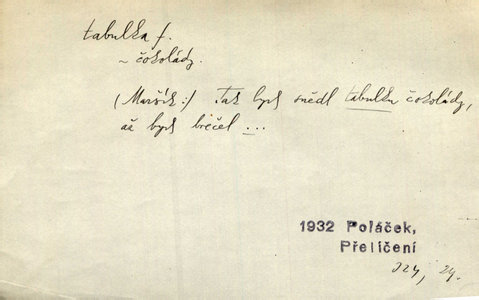 tabulka f.
~ čokolády.
(Maršík:) Tak bych snědl tabulku čokolády,
až bych brečel ...
1932 Poláček,
Přelíčení
124, 29.